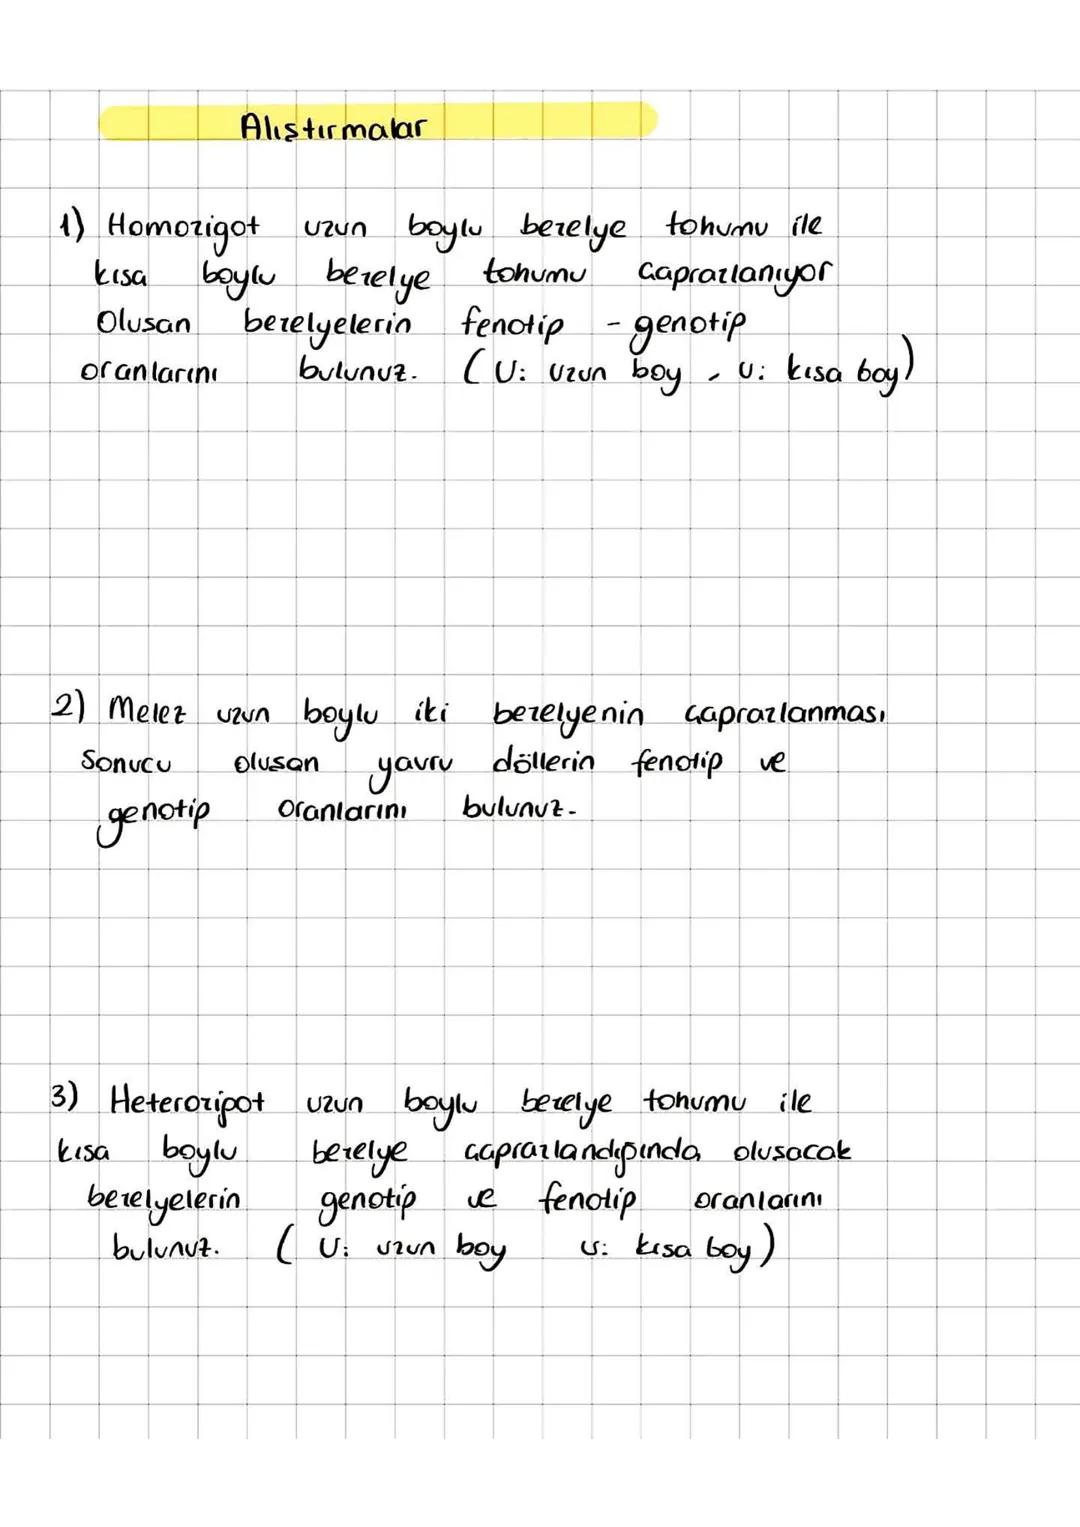 Alıstırmalar
1) Homozigot uzun boylu bezelye tohumu ile
kısa boylu bezelye tohumu çaprazlanıyor
Olusan bezelyelerin fenotip - genotip
oranlarını bulunuz. (U: uzun boy, u: kısa boy)
2) Melez uzun boylu iki bezelyenin çaprazlanması
sonucu olusan yavru döllerin fenotip ve
genotip oranlarını bulunuz.
3) Heterozigot uzun boylu bezelye tohumu ile
kısa boylu bezelye çaprazlandığında olusacak
bezelyelerin genotip ve fenotip oranlarını
bulunuz. ( U: uzun boy u: kısa boy)